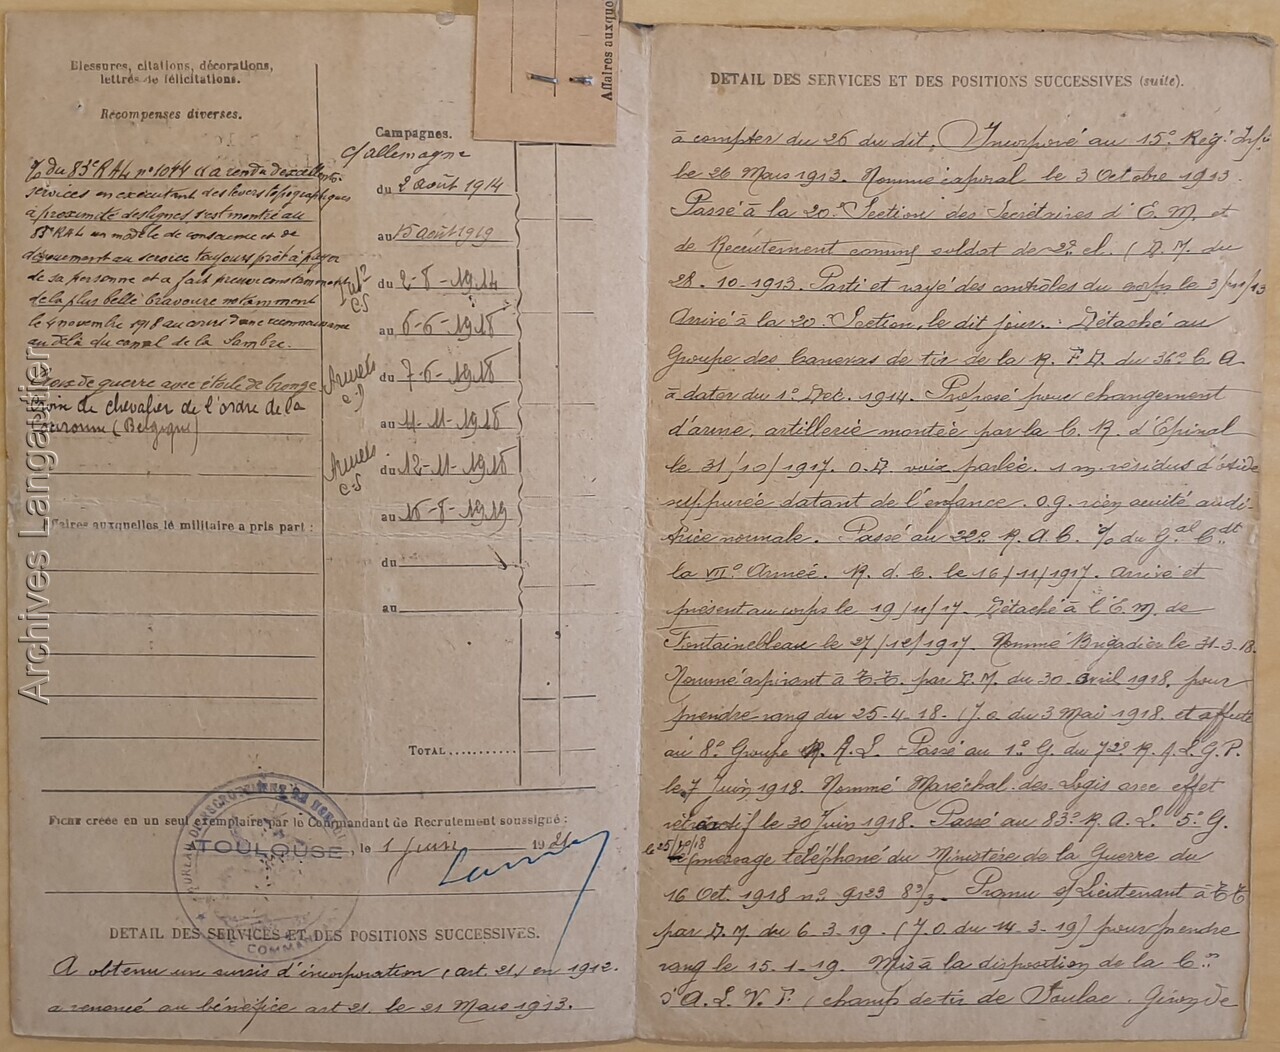 Blessures, citations, décorations,
lettres de félicitations.
Récompenses diverses.
% du 83e RAL n° 1044 a rendu d'excellents
services en exécutant des levers topographiques
à proximité des lignes s'est montré au
83e RAL un modèle de conscience et de
dévouement au service toujours prêt à payer
de sa personne et a fait preuve constamment
de la plus belle bravoure notamment
le 4 novembre 1918 au cours d'une reconnaissance
au delà du canal de la Sambre.
Croix de guerre avec étoile de bronze
Croix de chevalier de l'ordre de la
Couronne (Belgique)
Affaires auxquelles le militaire a pris part :
Campagnes.
c/ allemagne
du 2 août 1914
au 15 août 1919
du 2-8-1914
CS
au 6-6-1918
Armées
du 7-6-1918
au 11-11-1918
Armées
du 12-11-1918
CS
au 15-8-1919
du
au
TOTAL
Affaires auxquo
FICHE créée en un seul exemplaire par le Commandant de Recrutement soussigné :
TOULOUSE, le 1 Juin 1921
BUREAU DE RECRUTEMENT
COMMANDANT
DÉTAIL DES SERVICES ET DES POSITIONS SUCCESSIVES.
A obtenu un sursis d'incorporation (art. 21) en 1912.
a renoncé au bénéfice art 21. le 21 Mars 1913.
DÉTAIL DES SERVICES ET DES POSITIONS SUCCESSIVES (suite).
à compter du 26 du dit. Incorporé au 15e Régt Infie
le 26 Mars 1913. Nommé caporal le 3 Octobre 1913.
Passé à la 20e Section des Secrétaires d'E.M. et
de Recrutement comme soldat de 2e cl. (D.M. du
28.10-1913. Parti et rayé des contrôles du corps le 3/11/13
Arrivé à la 20e Section, le dit jour. Détaché au
Groupe des Canevas de tir de la R.F.D. du 36e C.A
à dater du 1er Déc. 1914. Proposé pour changement
d'arme, artillerie montée par la C.R. d'Epinal
le 31/10/1917. O.D. voix parlée. 1 m. résidus d'otite
suppurée datant de l'enfance. O.g. rien acuité audi-
trice normale. Passé au 22e R.A.C. % du Gal Cdt
la VIIe Armée. R.d.C. le 16/11/1917. Arrivé et
présent au corps le 19/11/17. Détaché à l'E.M. de
Fontainebleau le 27/12/1917. Nommé Brigadier le 31-3-18.
Nommé aspirant à T.T. par D.M. du 30 avril 1918. pour
prendre rang du 25-4-18. (J.o. du 3 Mai 1918. et affecté
au 8e Groupe R.A.L. Passé au 1er G. du 72e R.A.L.G.P.
le 7 Juin 1918. Nommé Maréchal des Logis avec effet
rétroactif le 30 Juin 1918. Passé au 83e R.A.L. 5e G.
le 25/10/18 (message téléphoné du Ministère de la Guerre du
16 Oct. 1918 n° 9123 8°/3. Promu s/Lieutenant à TT
par D.M. du 6-3-19. (J.O. du 14-3-19) pour prendre
rang le 15-1-19. Mis à la disposition de la Con
d'A.L.V.F. (champ de tir de Soulac. Gironde
Archives Langautier